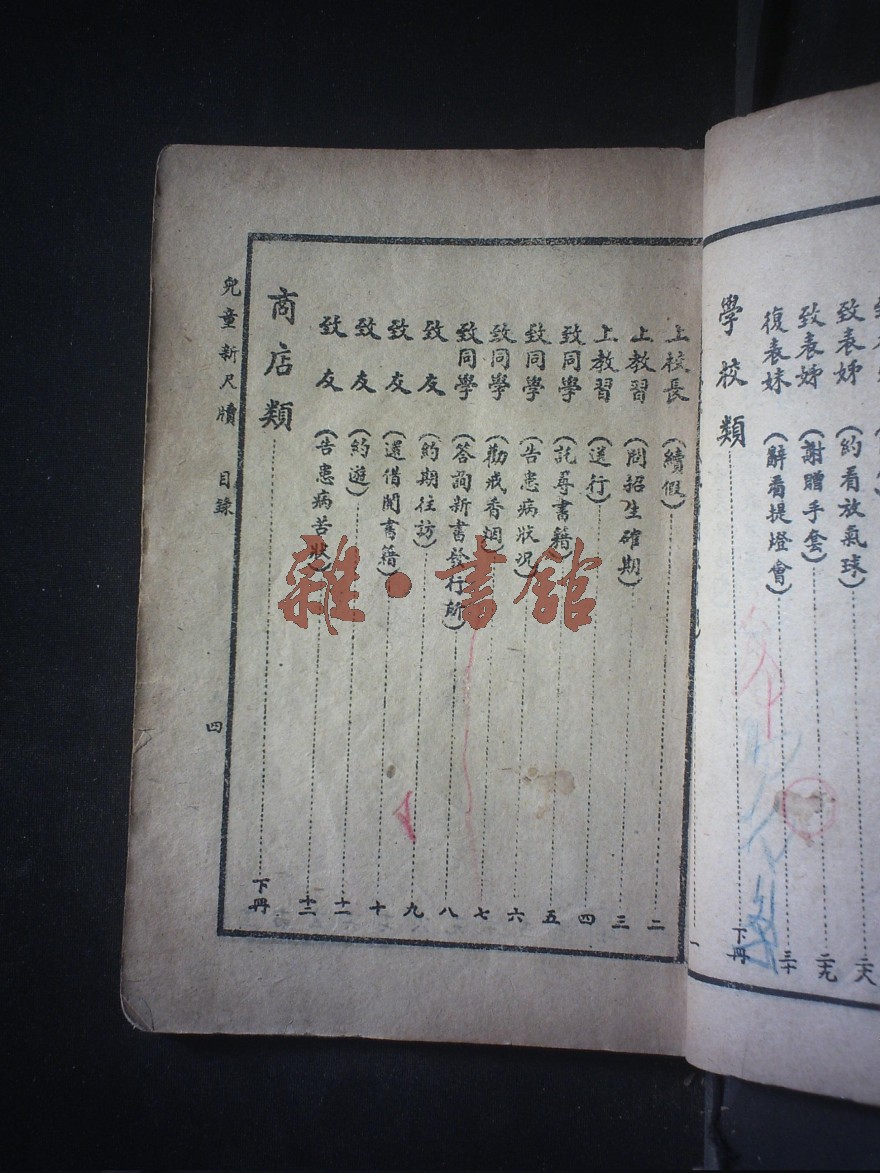 致表姊（約看放氣球）二六
致表姊（謝贈手套）二九
復表妹（辭看提燈會）三十
學校類 下冊
一
上校長（續假）二
上教習（問招生確期）三
上教習（送行）四
致同學（託尋書籍）五
致同學（告患病狀況）六
致同學（勸戒香烟）七
致同學（答詢新書發行所）八
致友（約期往訪）九
致友（還借閱書籍）十
致友（約遊）十一
致友（告患病苦狀）十二
商店類 下冊
兒童新尺牘 目錄 四
雜·書館